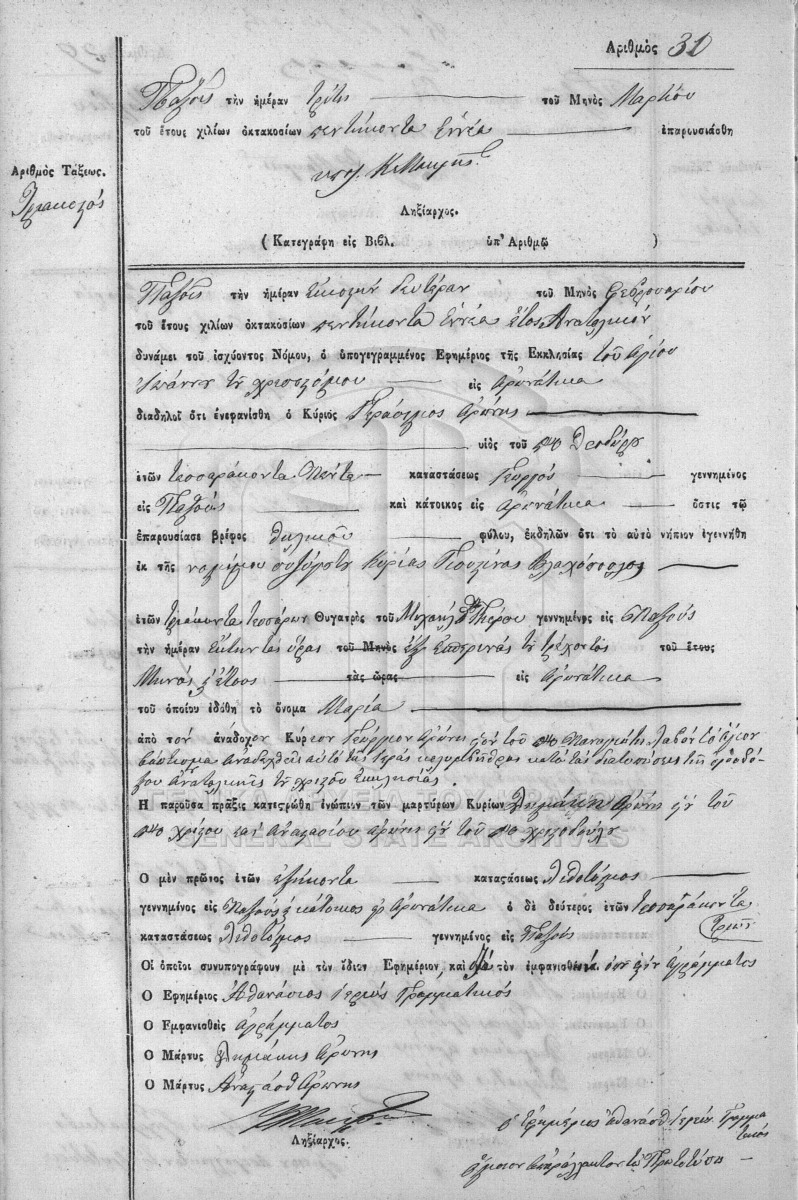 Ἀριθμὸς 31
Παξοῖς τὴν ἡμέραν τρίτη τοῦ Μηνὸς Μαρτίου
τοῦ ἔτους χιλίων ὀκτακοσίων πεντήκοντα Ἐννέα ἐπαρουσιάσθη
Ἀριθμὸς Τάξεως.
Ληξίαρχος.
( Κατεγράφη εἰς Βιβλ. ὑπ' Ἀριθμῷ )
Παξοῖς τὴν ἡμέραν Εἰκοστὴν δευτέραν τοῦ Μηνὸς Φεβρουαρίου
τοῦ ἔτους χιλίων ὀκτακοσίων πεντήκοντα Ἐννέα Ἔτος Ἀνατολικόν
δυνάμει τοῦ ἰσχύοντος Νόμου, ὁ ὑπογεγραμμένος Ἐφημέριος τῆς Ἐκκλησίας τοῦ Ἁγίου
Ἰωάννου τοῦ χρισοστόμου εἰς Ἀρωνάτικα
διαδηλοῖ ὅτι ἐνεφανίσθη ὁ Κύριος Γεράσιμος Ἀρώνης
υἱὸς τοῦ ποτὲ Θεοδώρου
ἐτῶν τεσσαράκοντα πέντε καταστάσεως Γεωργός γεννημένος
εἰς Παξούς καὶ κάτοικος εἰς Ἀρωνάτικα ὅστις τῷ
ἐπαρουσίασε βρέφος θηλικοῦ φύλου, ἐκδηλῶν ὅτι τὸ αὐτὸ νήπιον ἐγεννήθη
ἐκ τῆς νομίμου συζύγου του Κυρίας Γιουστίνας Βλαχόπουλος
ἐτῶν τριάκοντα τεσσάρων Θυγατρὸς τοῦ Μιχαήλ γεννημένης εἰς Παξούς
τὴν ἡμέραν Ἕκτην τὰς ὥρας τοῦ Μηνὸς ἕξ Ἑσπερινάς τοῦ τρέχοντος τοῦ ἔτους
Μηνός ἔτους τὰς ὥρας εἰς Ἀρωνάτικα
τοῦ ὁποίου ἐδόθη τὸ ὄνομα Μαρία
ἀπὸ τὸν ἀνάδοχον Κύριον Γεώργιον Ἀρώνη τοῦ ποτὲ Παναγιώτη λαβὸν τὸ ἅγιον
βάπτισμα ἀναδεχθεὶς αὐτὸ τῆς ἱερᾶς κολυμβήθρας κατὰ τὰς διατυπώσεις τῆς ὀρθοδό-
ξου Ἀνατολικῆς τοῦ χριστοῦ Ἐκκλησίας.
Ἡ παροῦσα πρᾶξις κατεστρώθη ἐνώπιον τῶν μαρτύρων Κυρίων Δημάκη Ἀρώνης τοῦ
ποτὲ χρίστου καὶ Ἀναστασίου Ἀρώνης τοῦ ποτὲ χριστοδούλου
GENERAL STATE ARCHIVES
Ὁ μὲν πρῶτος ἐτῶν ἑξήκοντα καταστάσεως Λιθοτόμος
γεννημένος εἰς Παξούς κάτοικος Ἀρωνάτικα ὁ δὲ δεύτερος ἐτῶν τεσσαράκοντα
τριῶν
καταστάσεως Λιθοτόμος γεννημένος εἰς Παξούς
Οἱ ὁποῖοι συνυπογράφουν μὲ τὸν ἴδιον Ἐφημέριον, καὶ τὸν ἐμφανισθέντα ἀγράμματος
Ὁ Ἐφημέριος Ἀθανάσιος Ἱερεύς Γραμματικός
Ὁ Ἐμφανισθεὶς ἀγράμματος
Ὁ Μάρτυς Δημάκης Ἀρώνης
Ὁ Μάρτυς Ἀναστάσιος Ἀρώνης
Ληξίαρχος.
ὁ ἐφημέριος Ἀθανάσιος Ἱερεύς Γραμμα
τικός
ὅμοιον ἀπαράλλακτον τῷ Πρωτοτύπῳ